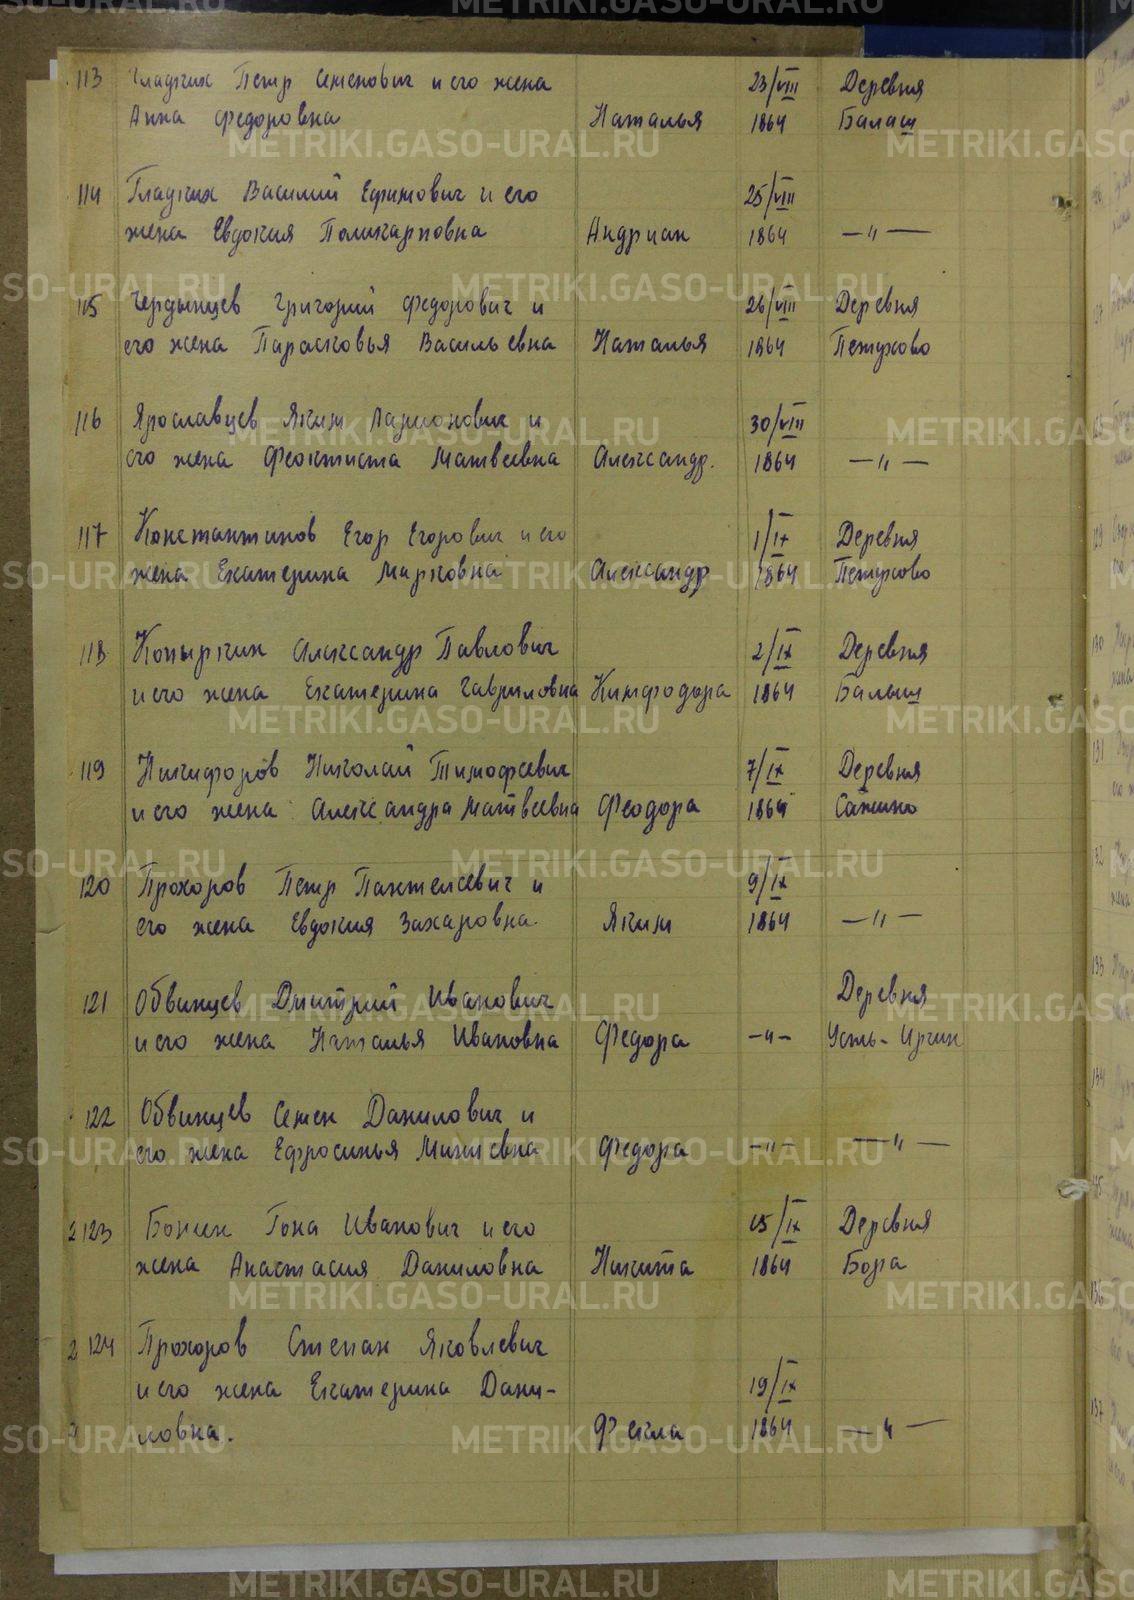 113 Гладких Петр Семенович и его жена 23/VIII Деревня
Анна Федоровна Наталья 1864 Балаш
114 Гладких Василий Ефимович и его 25/VIII
жена Евдокия Поликарповна Андриан 1864 —〃—
115 Чердынцев Григорий Федорович и 26/VIII Деревня
его жена Парасковья Васильевна Наталья 1864 Петухово
116 Ярославцев Яким Ларионович и 30/VIII
его жена Феоктиста Матвеевна Александр. 1864 —〃—
117 Константинов Егор Егорович и его 1/IX Деревня
жена Екатерина Марковна Александр 1864 Петухово
118 Копыркин Александр Павлович 2/IX Деревня
и его жена Екатерина Гавриловна Нимфодора 1864 Балыш
119 Никифоров Николай Тимофеевич 7/IX Деревня
и его жена Александра Матвеевна Феодора 1864 Сажино
120 Прохоров Петр Пантелеевич и 9/IX
его жена Евдокия Захаровна. Яким 1864 —〃—
121 Обвинцев Дмитрий Иванович Деревня
и его жена Наталья Ивановна Федора —〃— Усть-Иргин
122 Обвинцев Семен Данилович и
его жена Ефросинья Минеевна Федора —〃— —〃—
2 123 Бонин Гона Иванович и его 15/IX Деревня
жена Анастасия Даниловна Никита 1864 Бора
2 124 Прохоров Степан Яковлевич
и его жена Екатерина Дани- 19/IX
ловна. Фекла 1864 —〃—
METRIKI.GASO-URAL.RU